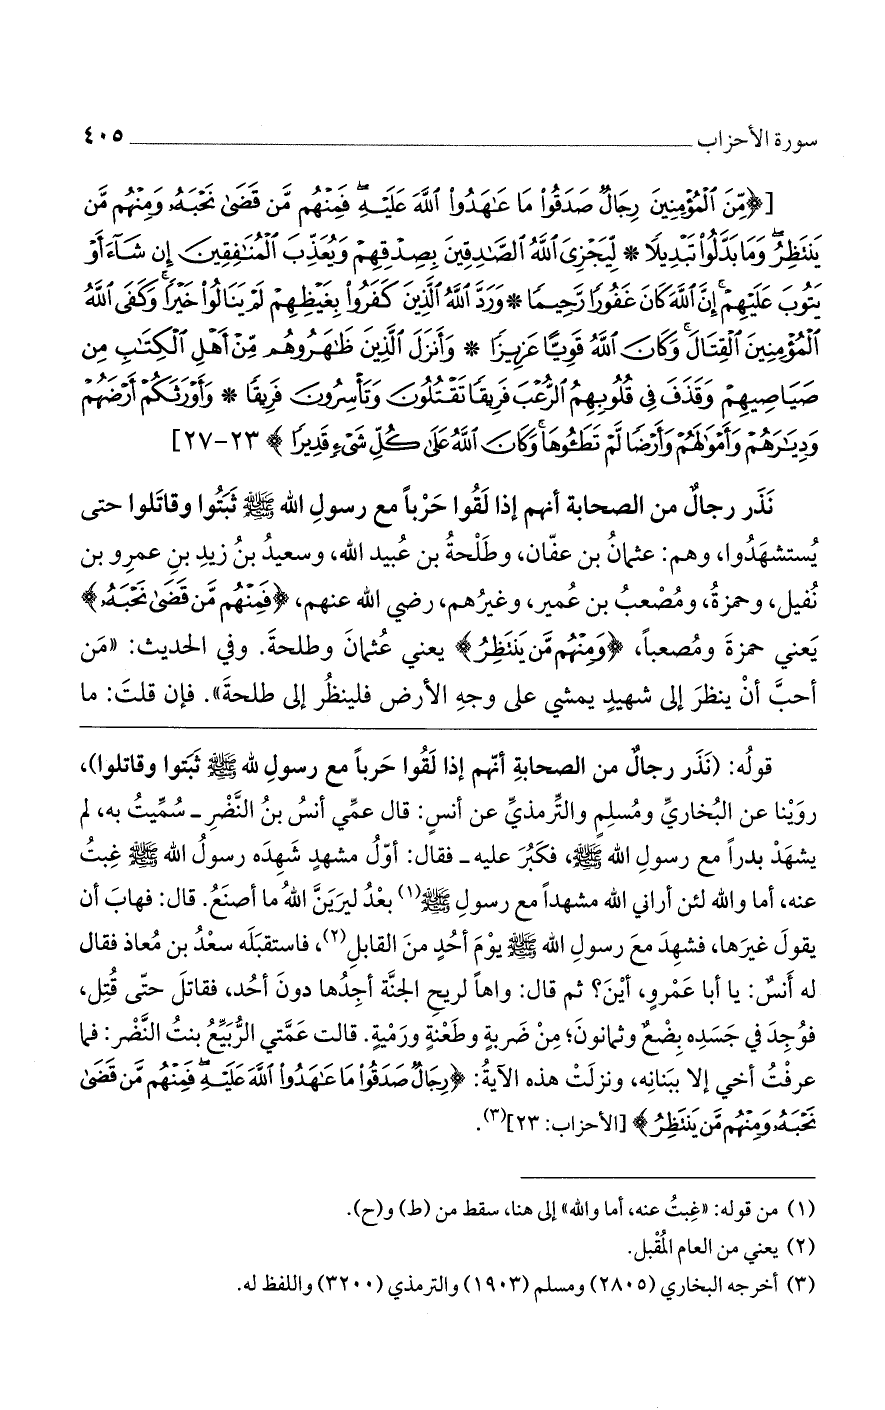 سورة الأحزاب ٤٠٥
[﴿مِّنَ ٱلْمُؤْمِنِينَ رِجَالٌ صَدَقُوا۟ مَا عَـٰهَدُوا۟ ٱللَّهَ عَلَيْهِ ۖ فَمِنْهُم مَّن قَضَىٰ نَحْبَهُۥ وَمِنْهُم مَّن
يَنتَظِرُ ۖ وَمَا بَدَّلُوا۟ تَبْدِيلًا * لِّيَجْزِىَ ٱللَّهُ ٱلصَّـٰدِقِينَ بِصِدْقِهِمْ وَيُعَذِّبَ ٱلْمُنَـٰفِقِينَ إِن شَآءَ أَوْ
يَتُوبَ عَلَيْهِمْ ۚ إِنَّ ٱللَّهَ كَانَ غَفُورًا رَّحِيمًا * وَرَدَّ ٱللَّهُ ٱلَّذِينَ كَفَرُوا۟ بِغَيْظِهِمْ لَمْ يَنَالُوا۟ خَيْرًا ۚ وَكَفَى ٱللَّهُ
ٱلْمُؤْمِنِينَ ٱلْقِتَالَ ۚ وَكَانَ ٱللَّهُ قَوِيًّا عَزِيزًا * وَأَنزَلَ ٱلَّذِينَ ظَـٰهَرُوهُم مِّنْ أَهْلِ ٱلْكِتَـٰبِ مِن
صَيَاصِيهِمْ وَقَذَفَ فِى قُلُوبِهِمُ ٱلرُّعْبَ فَرِيقًا تَقْتُلُونَ وَتَأْسِرُونَ فَرِيقًا * وَأَوْرَثَكُمْ أَرْضَهُمْ
وَدِيَـٰرَهُمْ وَأَمْوَٰلَهُمْ وَأَرْضًا لَّمْ تَطَـُٔوهَا ۚ وَكَانَ ٱللَّهُ عَلَىٰ كُلِّ شَىْءٍ قَدِيرًا﴾ ٢٣-٢٧]
نَذَر رجالٌ من الصحابة أنهم إذا لَقُوا حَرْباً مع رسولِ الله ﷺ ثَبَتُوا وقاتَلوا حتى
يُستشهَدُوا، وهم: عثمانُ بن عفّان، وطَلْحةُ بن عُبيد الله، وسعيدُ بنُ زيدِ بنِ عمرِو بن
نُفيل، وحمزةُ، ومُصْعبُ بن عُمير، وغيرُهم، رضي الله عنهم، ﴿فَمِنْهُم مَّن قَضَىٰ نَحْبَهُۥ﴾
يَعني حمزةَ ومُصعباً، ﴿وَمِنْهُم مَّن يَنتَظِرُ﴾ يعني عُثمانَ وطلحةَ. وفي الحديث: «مَن
أحبَّ أنْ ينظرَ إلى شهيدٍ يمشي على وجهِ الأرض فلينظُر إلى طلحةَ». فإن قلتَ: ما
قولُه: (نَذَر رجالٌ من الصحابةِ أنّهم إذا لَقُوا حَرباً مع رسولِ لله ﷺ ثَبَتوا وقاتلوا)،
روَيْنا عن البُخاريِّ ومُسلِمٍ والتِّرمذيِّ عن أنسٍ: قال عمِّي أنسُ بنُ النَّضْرِ ـ سُمِّيتُ به، لم
يشهَدْ بدراً مع رسولِ الله ﷺ، فكَبُرَ عليه ـ فقال: أوّلُ مشهدٍ شَهِدَه رسولُ الله ﷺ غِبتُ
عنه، أما والله لئن أراني الله مشهداً مع رسولِ ﷺ(١) بعْدُ ليرَيَنَّ اللهُ ما أصنَعُ. قال: فهابَ أن
يقولَ غيرَها، فشهِدَ معَ رسولِ الله ﷺ يوْمَ أحُدٍ منَ القابلِ(٢)، فاستقبَلَه سعْدُ بن مُعاذ فقال
له أَنسٌ: يا أبا عَمْرٍو، أيْنَ؟ ثم قال: واهاً لريحِ الجنَّة أجِدُها دونَ أحُد، فقاتَلَ حتّى قُتِل،
فوُجِدَ في جَسَدِه بِضْعٌ وثمانونَ؛ مِنْ ضَربةٍ وطَعْنةٍ ورَمْيةٍ. قالت عَمَّتي الرُّبَيِّعُ بنتُ النَّضْر: فما
عرفْتُ أخي إلا ببَنانِه، ونزلَتْ هذه الآيةُ: ﴿رِجَالٌ صَدَقُوا۟ مَا عَـٰهَدُوا۟ ٱللَّهَ عَلَيْهِ ۖ فَمِنْهُم مَّن قَضَىٰ
نَحْبَهُۥ وَمِنْهُم مَّن يَنتَظِرُ﴾ [الأحزاب: ٢٣](٣).
(١) من قوله: «غِبتُ عنه، أما والله» إلى هنا، سقط من (ط) و(ح).
(٢) يعني من العام المُقْبل.
(٣) أخرجه البخاري (٢٨٠٥) ومسلم (١٩٠٣) والترمذي (٣٢٠٠) واللفظ له.